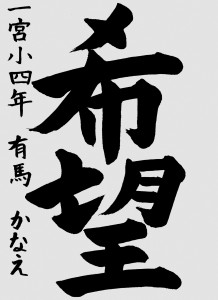 希望
一宮小四年 有馬 かなえ